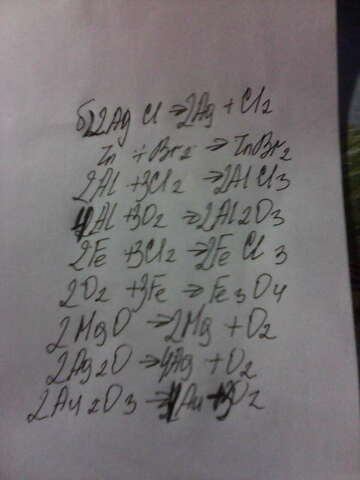 б) 2AgCl → 2Ag + Cl2
Zn + Br2 → ZnBr2
2Al + 3Cl2 → 2AlCl3
4Al + 3O2 → 2Al2O3
2Fe + 3Cl2 → 2FeCl3
2O2 + 3Fe → Fe3O4
2MgO → 2Mg + O2
2Ag2O → 4Ag + O2
2Au2O3 → 4Au + 3O2